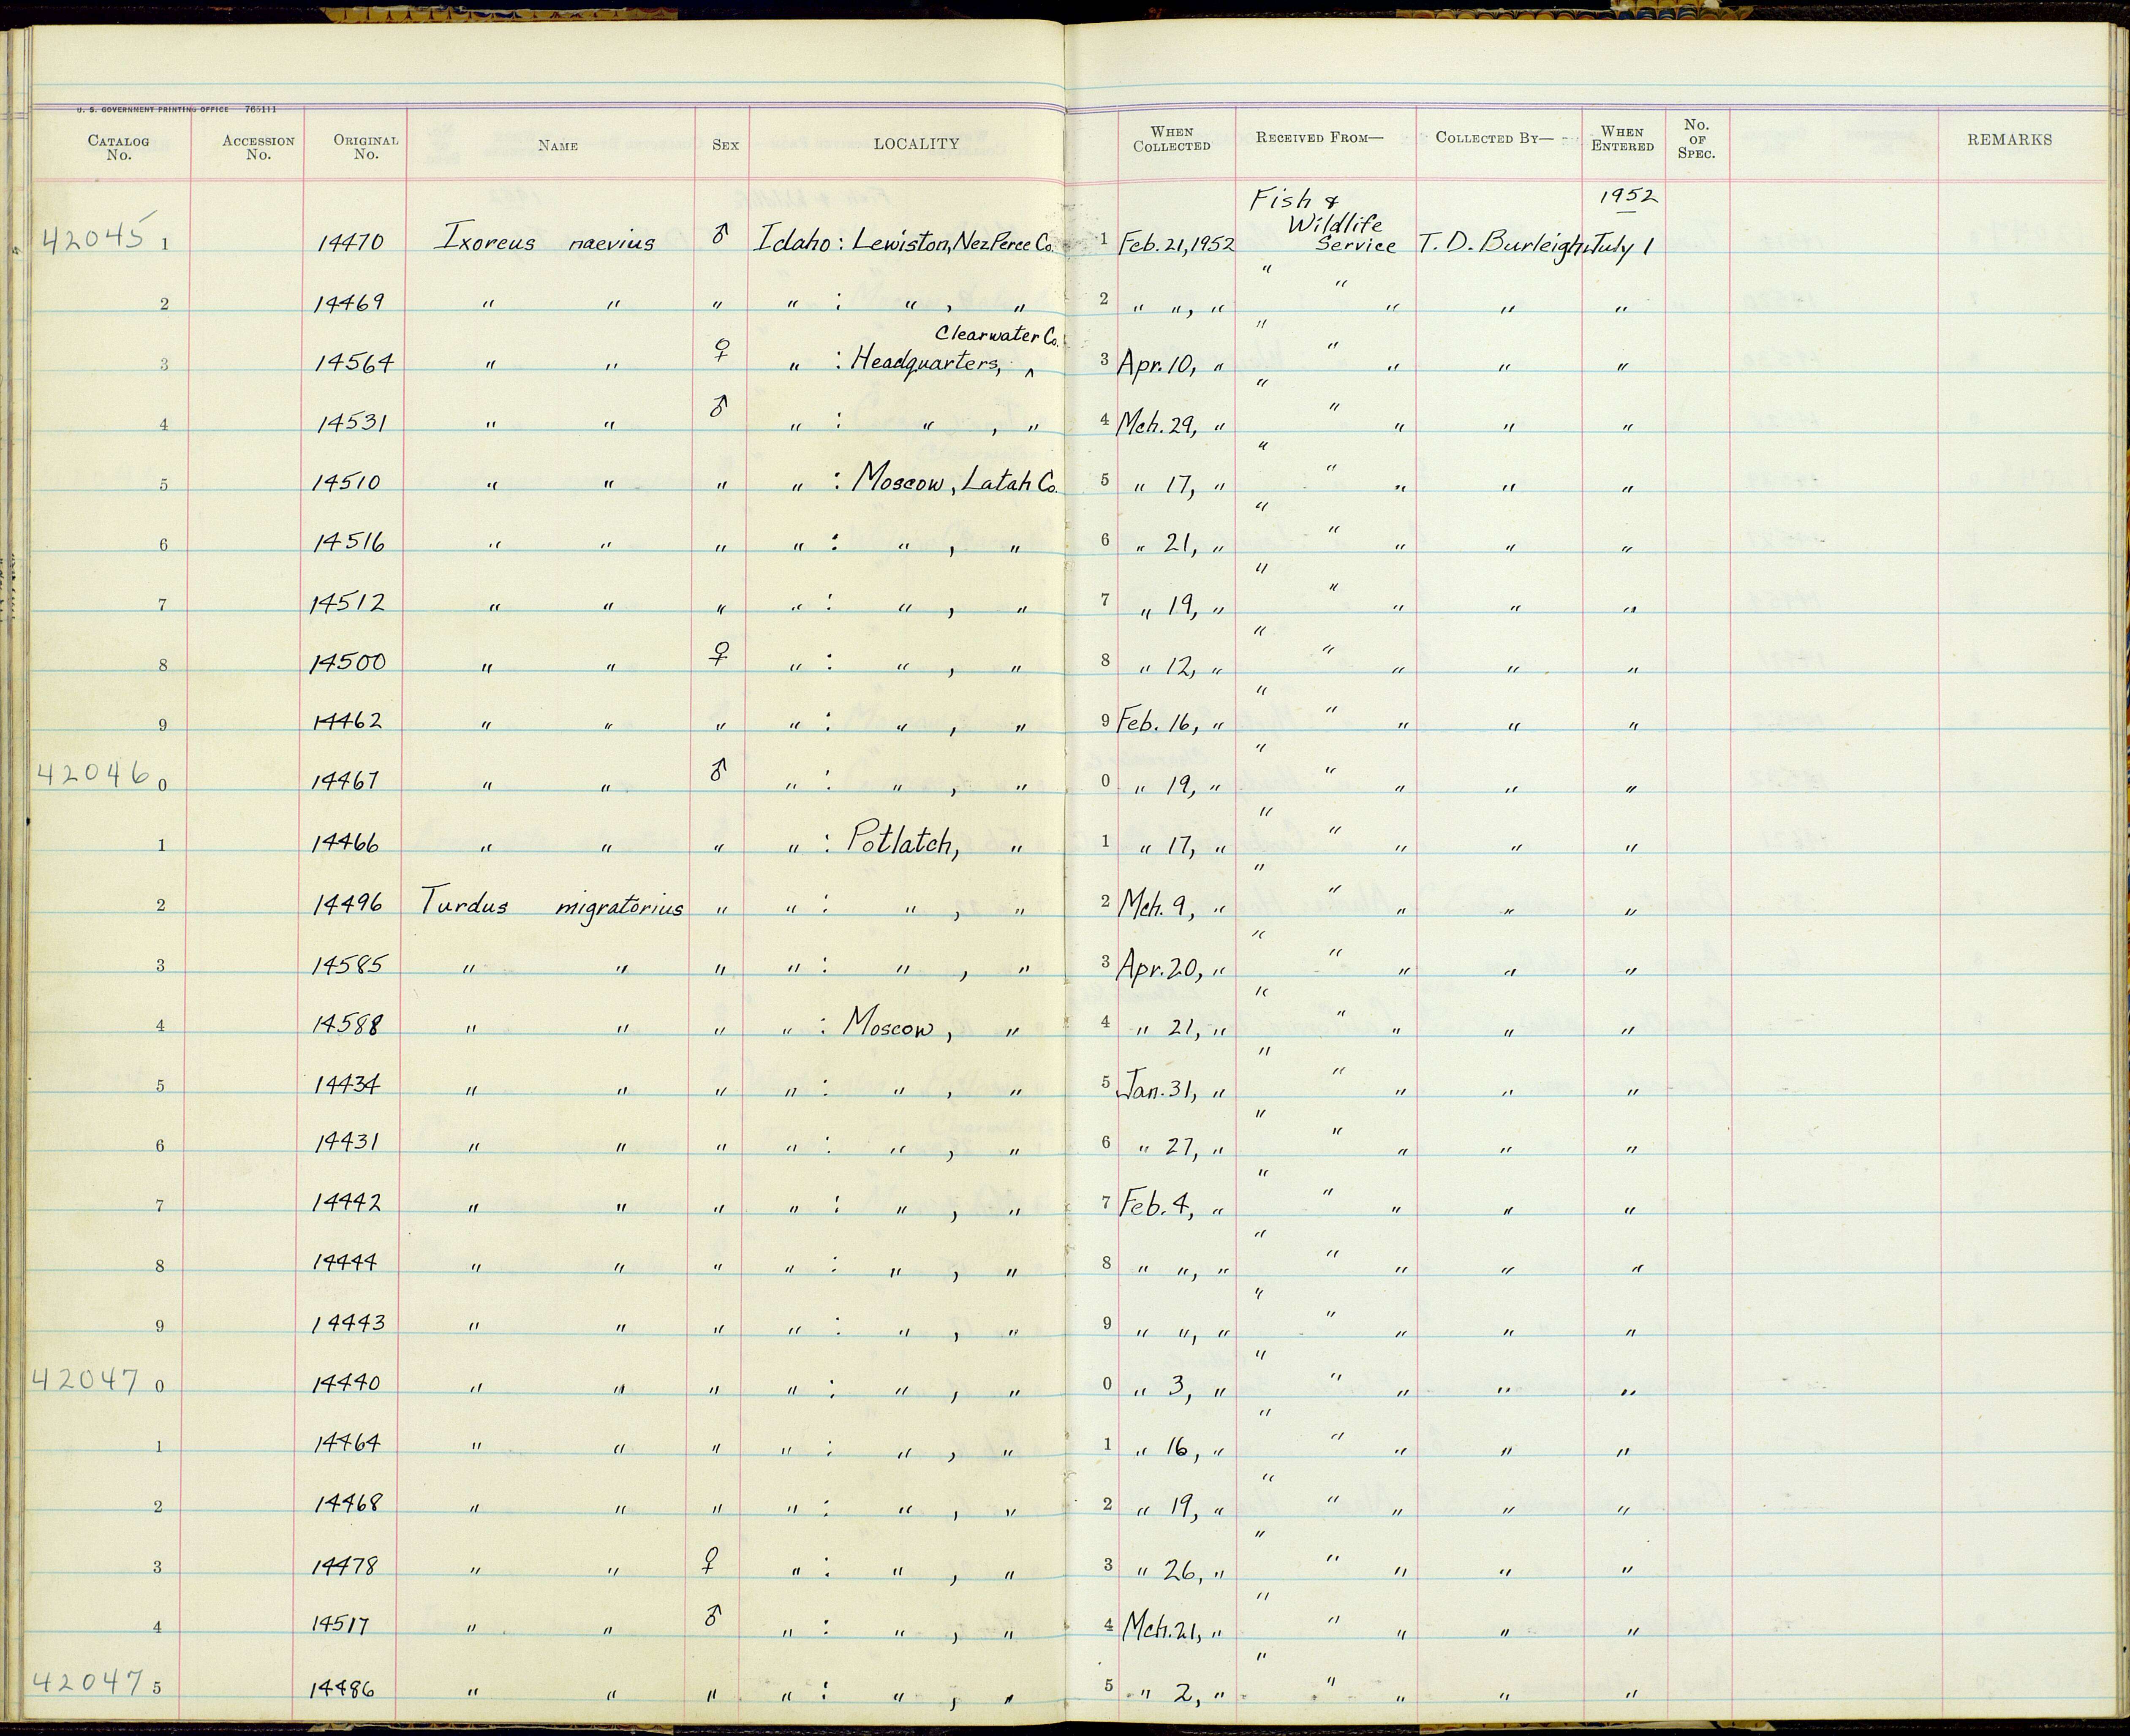 U. S. GOVERNMENT PRINTING OFFICE 765111
CATALOG No. ACCESSION No. ORIGINAL No. NAME SEX LOCALITY WHEN COLLECTED RECEIVED FROM— COLLECTED BY— WHEN ENTERED No. OF SPEC. REMARKS
42045 1 14470 Ixoreus naevius ♂ Idaho: Lewiston, Nez Perce Co. 1 Feb. 21, 1952 Fish & Wildlife Service T. D. Burleigh 1952 July 1
2 14469 " " " " : " , " 2 " ", " " " " " "
3 14564 " " ♀ " : Headquarters, ^ Clearwater Co. 3 Apr. 10, " " " " " "
4 14531 " " ♂ " : " , " 4 Mch. 29, " " " " " "
5 14510 " " " " : Moscow, Latah Co. 5 " 17, " " " " " "
6 14516 " " " " : " , " 6 " 21, " " " " " "
7 14512 " " " " : " , " 7 " 19, " " " " " "
8 14500 " " ♀ " : " , " 8 " 12, " " " " " "
9 14462 " " " " : " , " 9 Feb. 16, " " " " " "
42046 0 14467 " " ♂ " : " , " 0 " 19, " " " " " "
1 14466 " " " " : Potlatch, " 1 " 17, " " " " " "
2 14496 Turdus migratorius " " : " , " 2 Mch. 9, " " " " " "
3 14585 " " " " : " , " 3 Apr. 20, " " " " " "
4 14588 " " " " : Moscow, " 4 " 21, " " " " " "
5 14434 " " " " : " , " 5 Jan. 31, " " " " " "
6 14431 " " " " : " , " 6 " 27, " " " " " "
7 14442 " " " " : " , " 7 Feb. 4, " " " " " "
8 14444 " " " " : " , " 8 " ", " " " " " "
9 14443 " " " " : " , " 9 " ", " " " " " "
42047 0 14440 " " " " : " , " 0 " 3, " " " " " "
1 14464 " " " " : " , " 1 " 16, " " " " " "
2 14468 " " " " : " , " 2 " 19, " " " " " "
3 14478 " " ♀ " : " , " 3 " 26, " " " " " "
4 14517 " " ♂ " : " , " 4 Mch. 21, " " " " " "
42047 5 14486 " " " " : " , " 5 " 2, " " " " " "